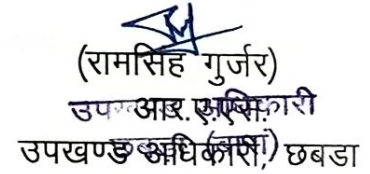 (रामसिंह गुर्जर)
आर.ए.एस.
उपखण्ड अधिकारी, छबडा